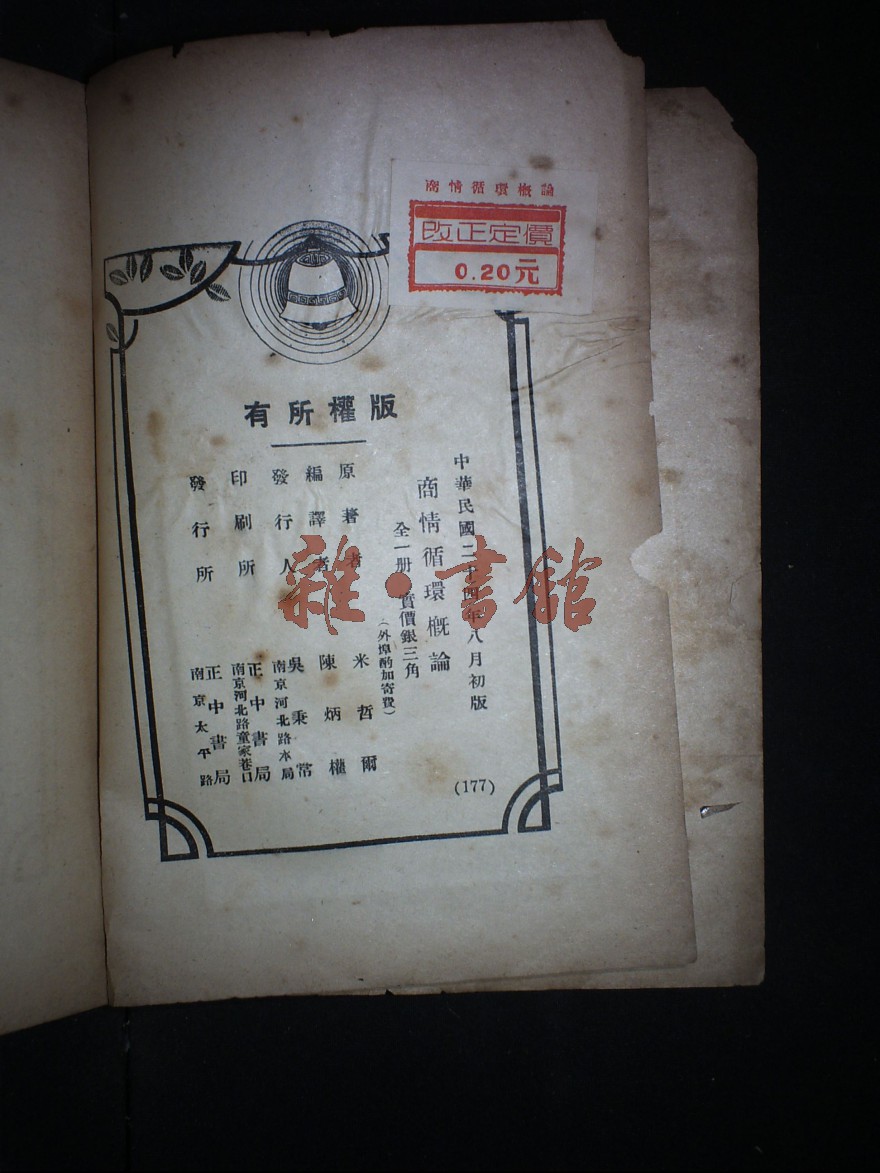 商情循環概論
改正定價
0.20元
有所權版
中華民國二十四年八月初版
商情循環概論
全一册 實價銀三角
(外埠酌加寄費)
原著者 米哲爾
編譯者 陳炳權
發行人 吳秉常
南京河北路本局
印刷所 正中書局
南京河北路童家巷口
發行所 正中書局
南京太平路
(177)
雜·書館